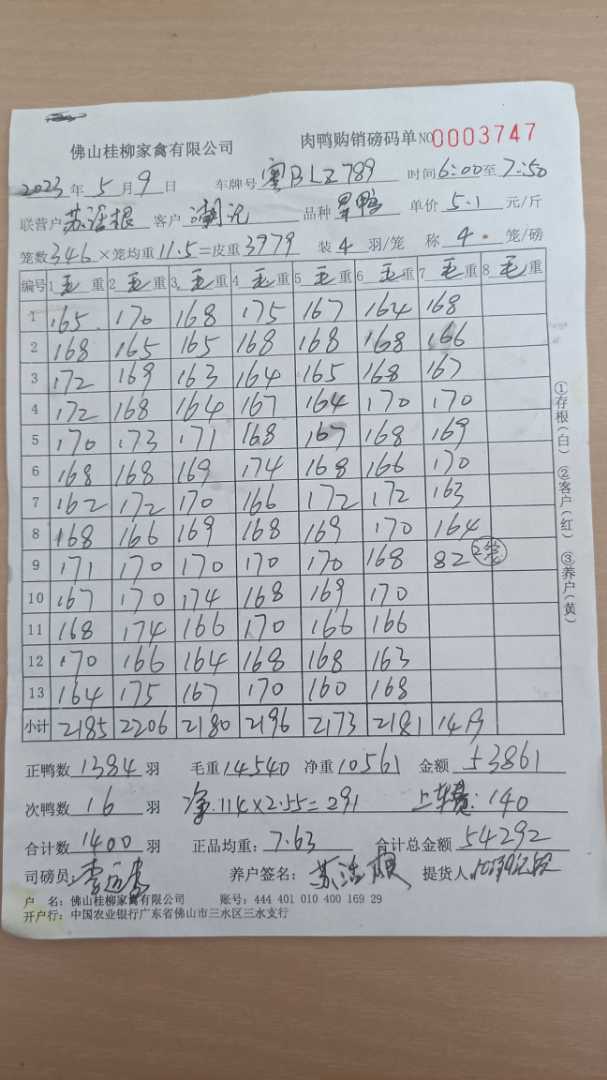 佛山桂柳家禽有限公司 肉鸭购销磅码单 NO 0003747
2023年5月9日 车牌号 粤BLZ789 时间6:00至7:50
联营户 苏 根 客户 潮记 品种 星鸭 单价 5.1 元/斤
笼数346×笼均重11.5=皮重3979 装4羽/笼 称4笼/磅
编号 1毛重 2毛重 3毛重 4毛重 5毛重 6毛重 7毛重 8毛重
1 165 170 168 175 167 164 168
2 168 165 165 168 168 168 166
3 172 169 163 164 165 168 167
4 172 168 164 167 164 170 170
5 170 173 171 168 167 168 169
6 168 168 169 174 168 166 170
7 162 172 170 166 172 172 163
8 168 166 169 168 169 170 164
9 171 170 170 170 170 168 82 2笼
10 167 170 174 168 169 170
11 168 174 166 170 166 166
12 170 166 164 168 168 163
13 164 175 167 170 160 168
小计 2185 2206 2180 2196 2173 2181 1419
①存根(白) ②客户(红) ③养户(黄)
正鸭数1384羽 毛重14540 净重10561 金额 53861
次鸭数16羽 净.114×2.55=291 上车费:140
合计数1400羽 正品均重:7.63 合计总金额54292
司磅员: 养户签名: 苏 根 提货人
户 名:佛山桂柳家禽有限公司 账号:444 401 010 400 169 29
开户行:中国农业银行广东省佛山市三水区三水支行